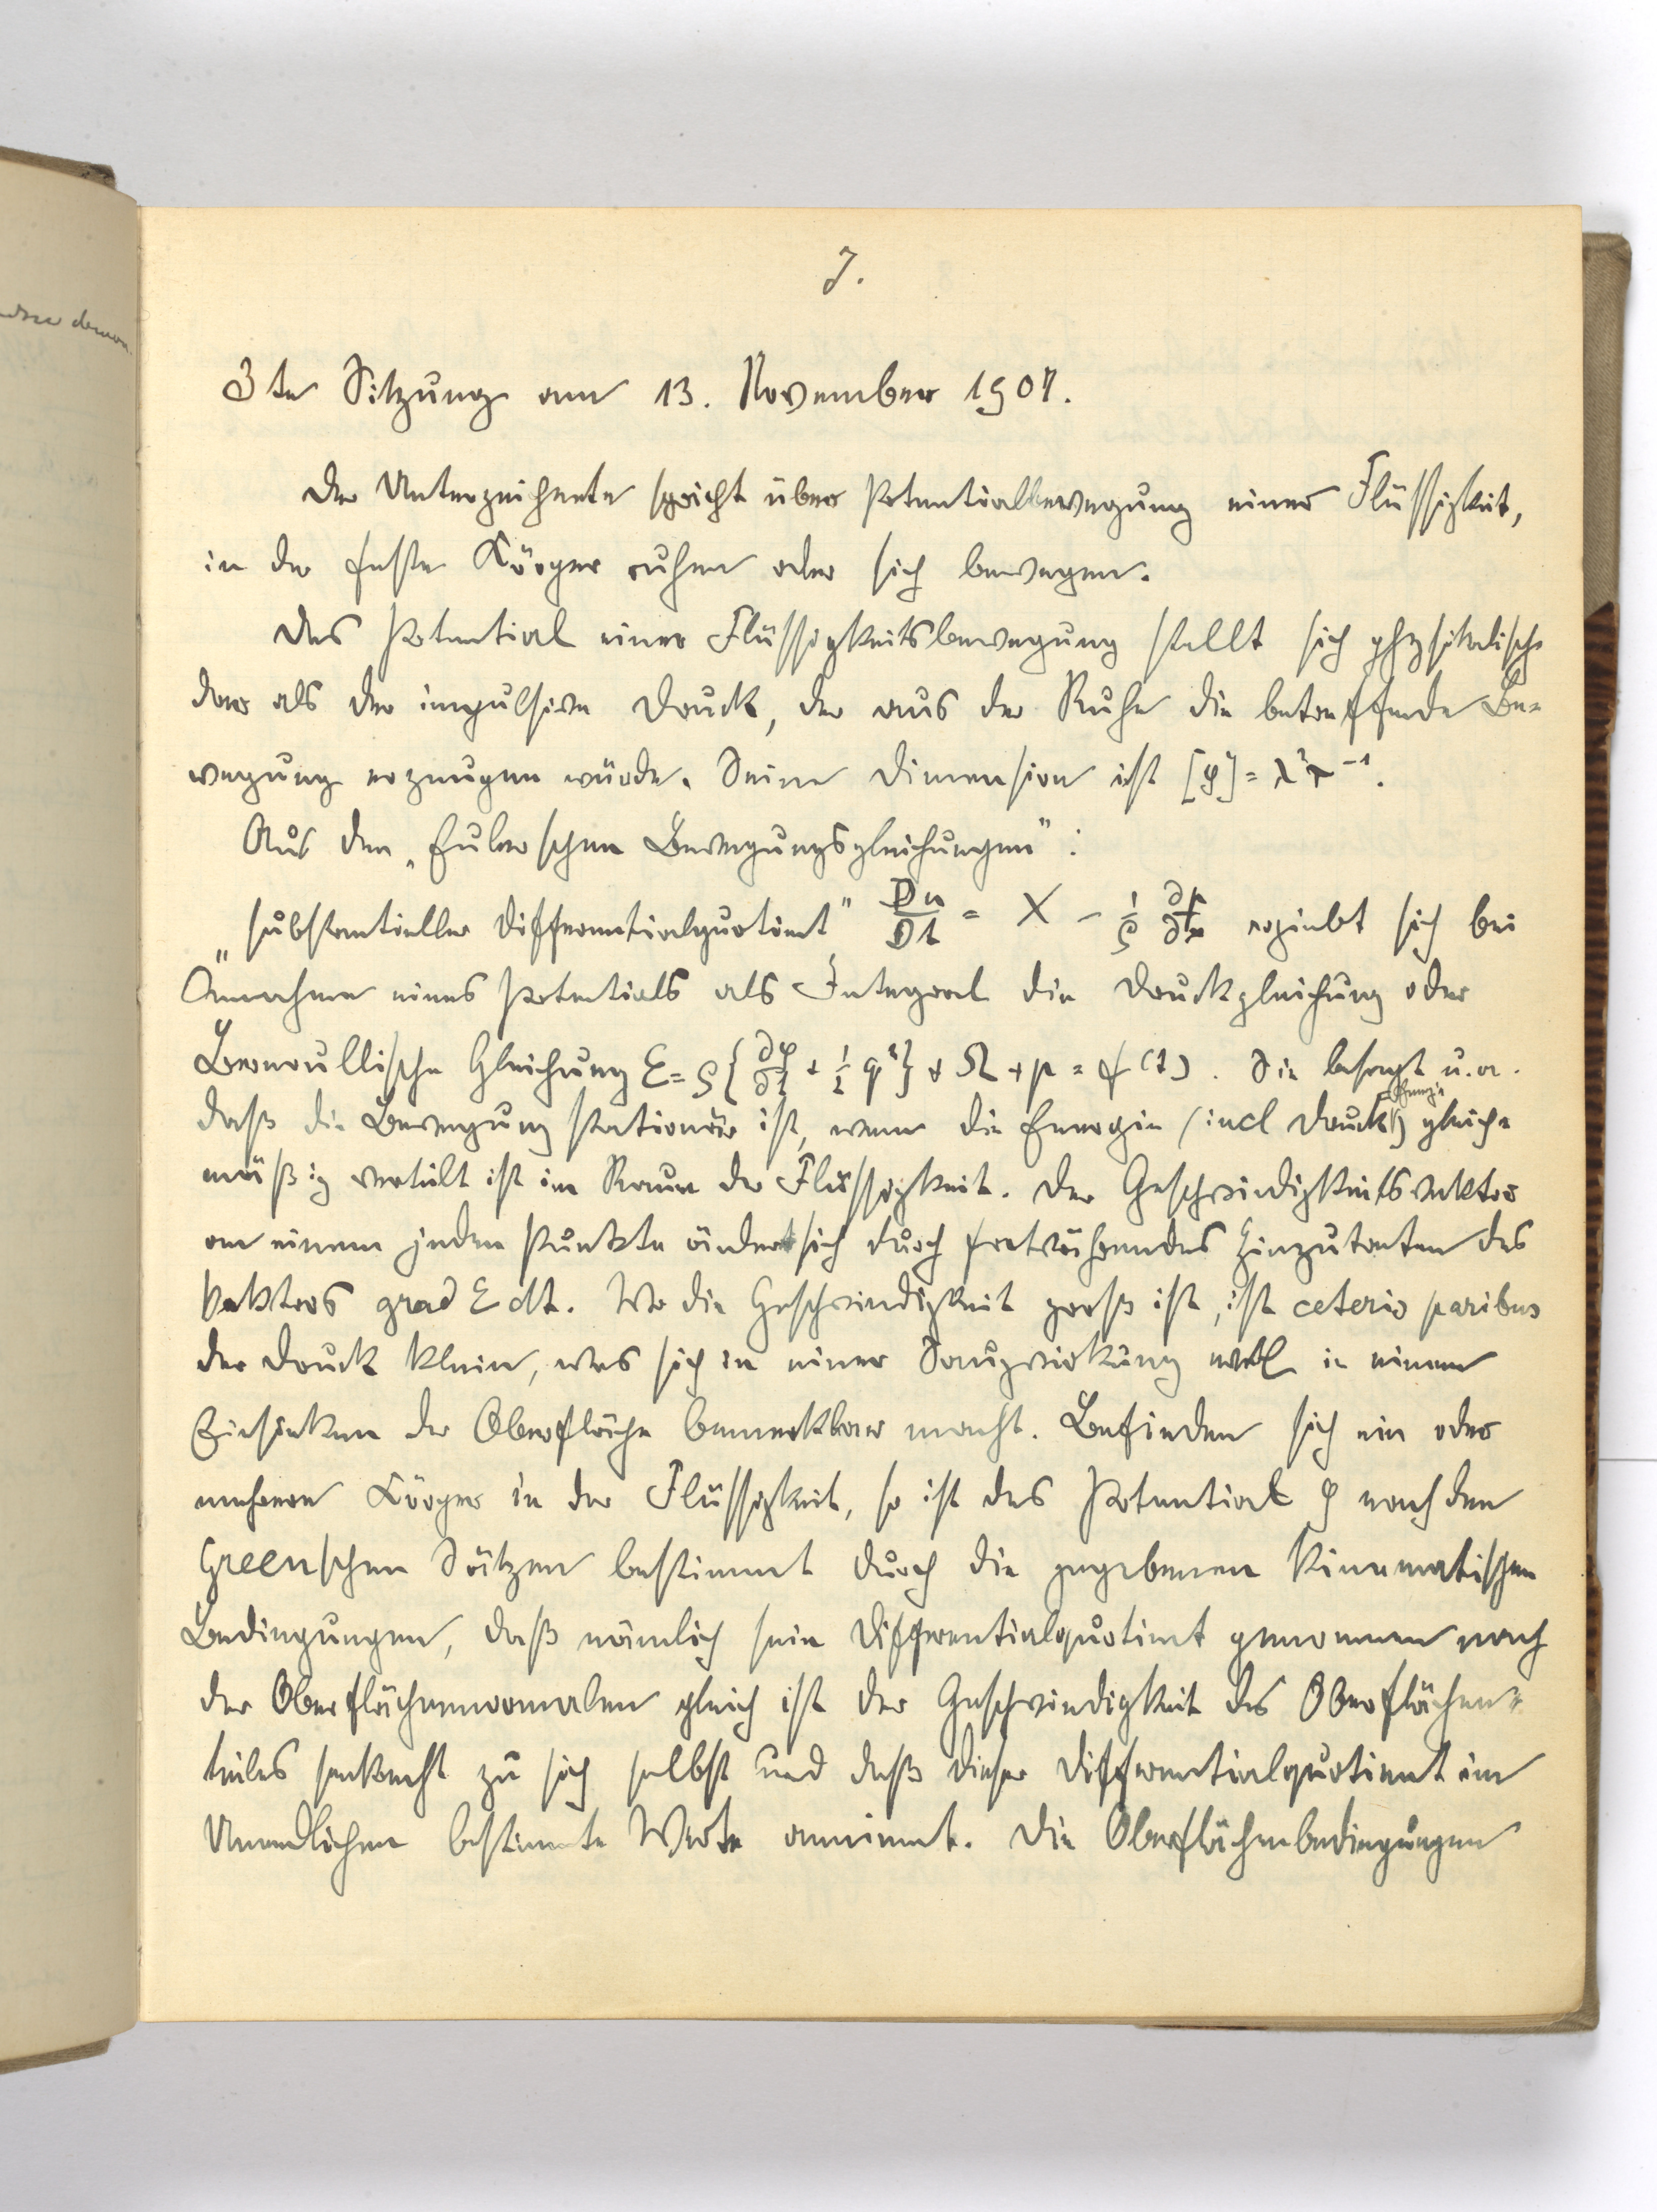 7.
3te Sitzung am 13. November 1907.
Der Unterzeichnete spricht über Potentialbewegung einer Flüssigkeit,
in der feste Körper ruhen oder sich bewegen.
Das Potential einer Flüssigkeitsbewegung stellt sich physikalisch
dar als der impulsive Druck, der aus der Ruhe die betreffende Be-
wegung erzeugen würde. Seine Dimension ist [φ] = λ²τ⁻¹.
Aus den „Eulerschen Bewegungsgleichungen“:
„substantieller Differentialquotient“ Du/Dt = X - 1/ρ ∂p/∂x ergiebt sich bei
Annahme eines Potentials als Integral die Druckgleichung oder
Bernoullische Gleichung Ɛ = ρ{∂φ/∂t + 1/2 q²} + Ω + p = f(t). Sie besagt u. a.
daß die Bewegung stationär ist, wenn die Energie (incl Druckenergie) gleich-
mäßig verteilt ist im Raum der Flüssigkeit. Der Geschwindigkeitsvektor
an einem jeden Punkte ändert sich durch fortwährendes Hinzutreten des
Vektors grad Ɛ dt. Wo die Geschwindigkeit groß ist, ist ceteris paribus
der Druck klein, was sich in einer Saugwirkung in einem
Einsinken der Oberfläche bemerkbar macht. Befinden sich ein oder
mehrere Körper in der Flüssigkeit, so ist das Potential φ nach den
Greenschen Sätzen bestimmt durch die gegebenen kinematischen
Bedingungen, daß nämlich sein Differentialquotient genommen nach
der Oberflächennormalen gleich ist der Geschwindigkeit des Oberflächen-
teiles senkrecht zu sich selbst und daß dieser Differentialquotient im
Unendlichen bestimmte Werte annimmt. Die Oberflächenbedingungen